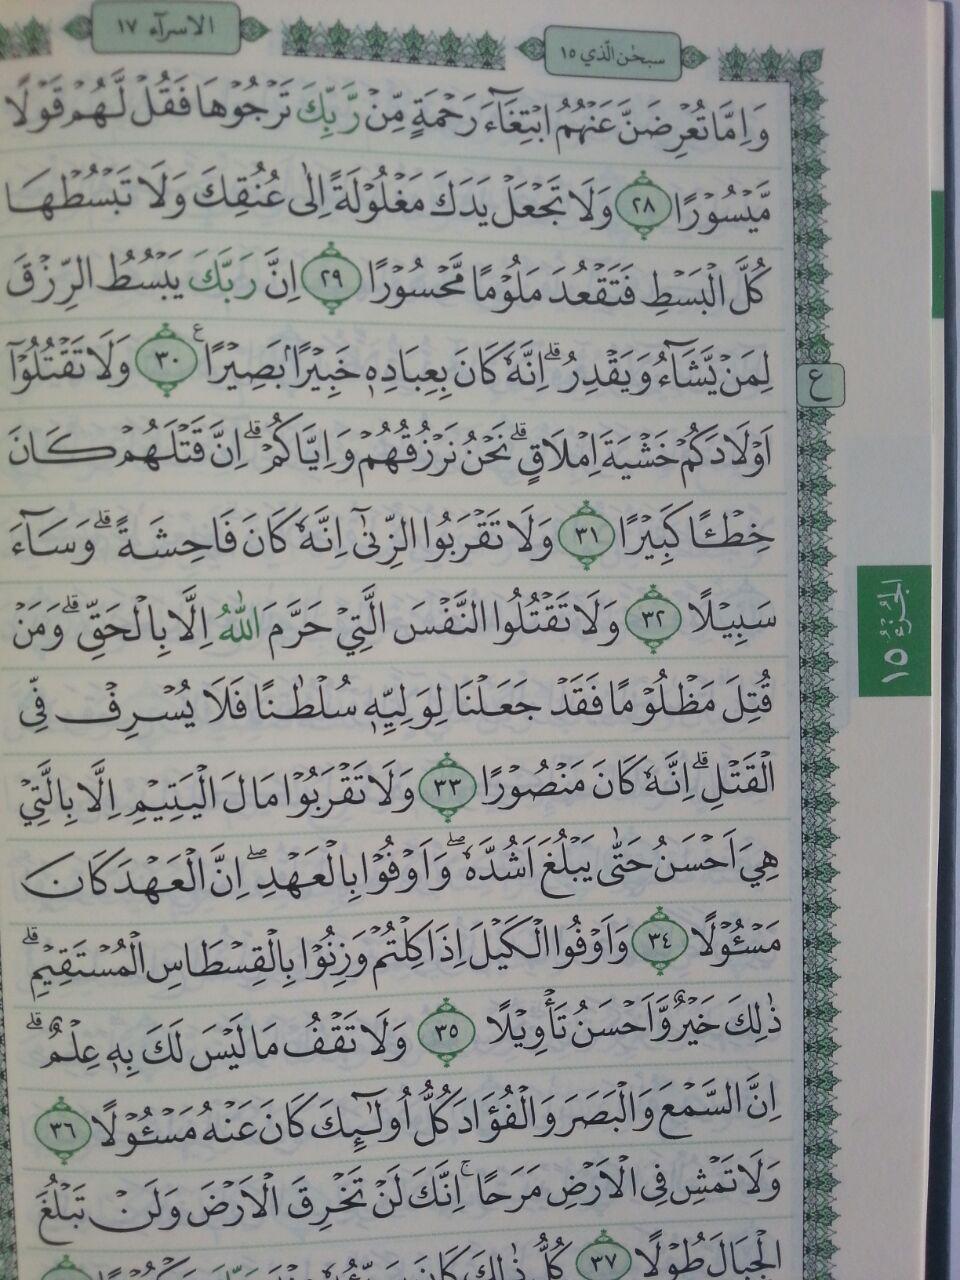 الاسرآء ١٧
سبحٰن الّذي ١٥
وَاِمَّا تُعْرِضَنَّ عَنْهُمُ ابْتِغَآءَ رَحْمَةٍ مِّنْ رَّبِّكَ تَرْجُوْهَا فَقُلْ لَّهُمْ قَوْلًا
مَّيْسُوْرًا ٢٨ وَلَا تَجْعَلْ يَدَكَ مَغْلُوْلَةً اِلٰى عُنُقِكَ وَلَا تَبْسُطْهَا
كُلَّ الْبَسْطِ فَتَقْعُدَ مَلُوْمًا مَّحْسُوْرًا ٢٩ اِنَّ رَبَّكَ يَبْسُطُ الرِّزْقَ
لِمَنْ يَّشَآءُ وَيَقْدِرُ ۗاِنَّهٗ كَانَ بِعِبَادِهٖ خَبِيْرًاۢ بَصِيْرًا ࣖ ٣٠ وَلَا تَقْتُلُوْٓا
ع
اَوْلَادَكُمْ خَشْيَةَ اِمْلَاقٍۗ نَحْنُ نَرْزُقُهُمْ وَاِيَّاكُمْۗ اِنَّ قَتْلَهُمْ كَانَ
خِطْـًٔا كَبِيْرًا ٣١ وَلَا تَقْرَبُوا الزِّنٰىٓ اِنَّهٗ كَانَ فَاحِشَةً ۗوَسَآءَ
سَبِيْلًا ٣٢ وَلَا تَقْتُلُوا النَّفْسَ الَّتِيْ حَرَّمَ اللّٰهُ اِلَّا بِالْحَقِّۗ وَمَنْ
قُتِلَ مَظْلُوْمًا فَقَدْ جَعَلْنَا لِوَلِيِّهٖ سُلْطٰنًا فَلَا يُسْرِفْ فِّى
الْقَتْلِۗ اِنَّهٗ كَانَ مَنْصُوْرًا ٣٣ وَلَا تَقْرَبُوْا مَالَ الْيَتِيْمِ اِلَّا بِالَّتِيْ
هِيَ اَحْسَنُ حَتّٰى يَبْلُغَ اَشُدَّهٗۖ وَاَوْفُوْا بِالْعَهْدِۖ اِنَّ الْعَهْدَ كَانَ
مَسْـُٔوْلًا ٣٤ وَاَوْفُوا الْكَيْلَ اِذَا كِلْتُمْ وَزِنُوْا بِالْقِسْطَاسِ الْمُسْتَقِيْمِۗ
ذٰلِكَ خَيْرٌ وَّاَحْسَنُ تَأْوِيْلًا ٣٥ وَلَا تَقْفُ مَا لَيْسَ لَكَ بِهٖ عِلْمٌ ۗ
اِنَّ السَّمْعَ وَالْبَصَرَ وَالْفُؤَادَ كُلُّ اُولٰۤىِٕكَ كَانَ عَنْهُ مَسْـُٔوْلًا ٣٦
وَلَا تَمْشِ فِى الْاَرْضِ مَرَحًاۚ اِنَّكَ لَنْ تَخْرِقَ الْاَرْضَ وَلَنْ تَبْلُغَ
الْجِبَالَ طُوْلًا ٣٧ كُلُّ ذٰلِكَ كَانَ
الجُزْءُ ١٥